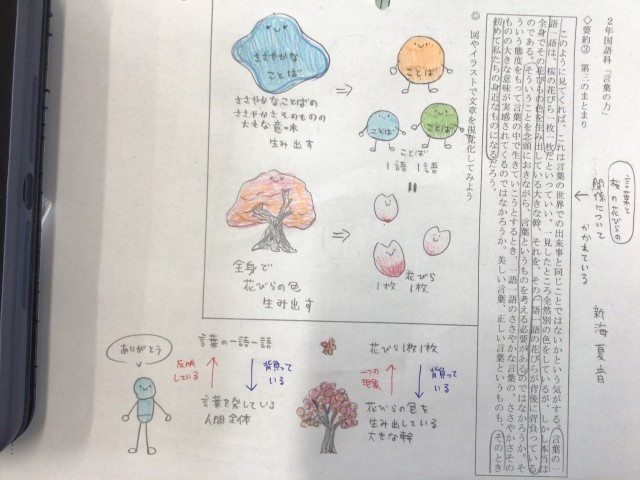 2年国語科「言葉の力」
◇要約③ 第三のまとまり
このように見てくれば、これは言葉の世界での出来事と同じことではないかという気がする。言葉の一
語一語は、桜の花びら一枚一枚だといっていい。一見したところ全然別の色をしているが、しかし本当は
全身でその花びらの色を生み出している大きな幹、それを、その一語一語の花びらが背後に背負っている
のである。そういうことを念頭におきながら、言葉というものを考える必要があるのではなかろうか。そ
ういう態度をもって言葉の中で生きていこうとするとき、一語一語のささやかな言葉の、ささやかさその
ものの大きな意味が実感されてくるのではなかろうか。美しい言葉、正しい言葉というものも、そのとき
初めて私たちの身近なものになるだろう。
言葉と
桜の花びらの
関係について
かかれている
新海夏音
◎ 図やイラストで文章を視覚化してみよう
ささやかな
ことば
ささやかなことばの
ささやかさそのものの
大きな意味
生み出す
ことば
ことば
ことば
ことば
1語 1語
全身で
花びらの色
生み出す
花びら
1枚 1枚
ありがとう
言葉の一語一語
反映
している
背負って
いる
言葉を発している
人間全体
花びら1枚1枚
一つの
現象
背負って
いる
花びらの色を
生み出している
大きな幹